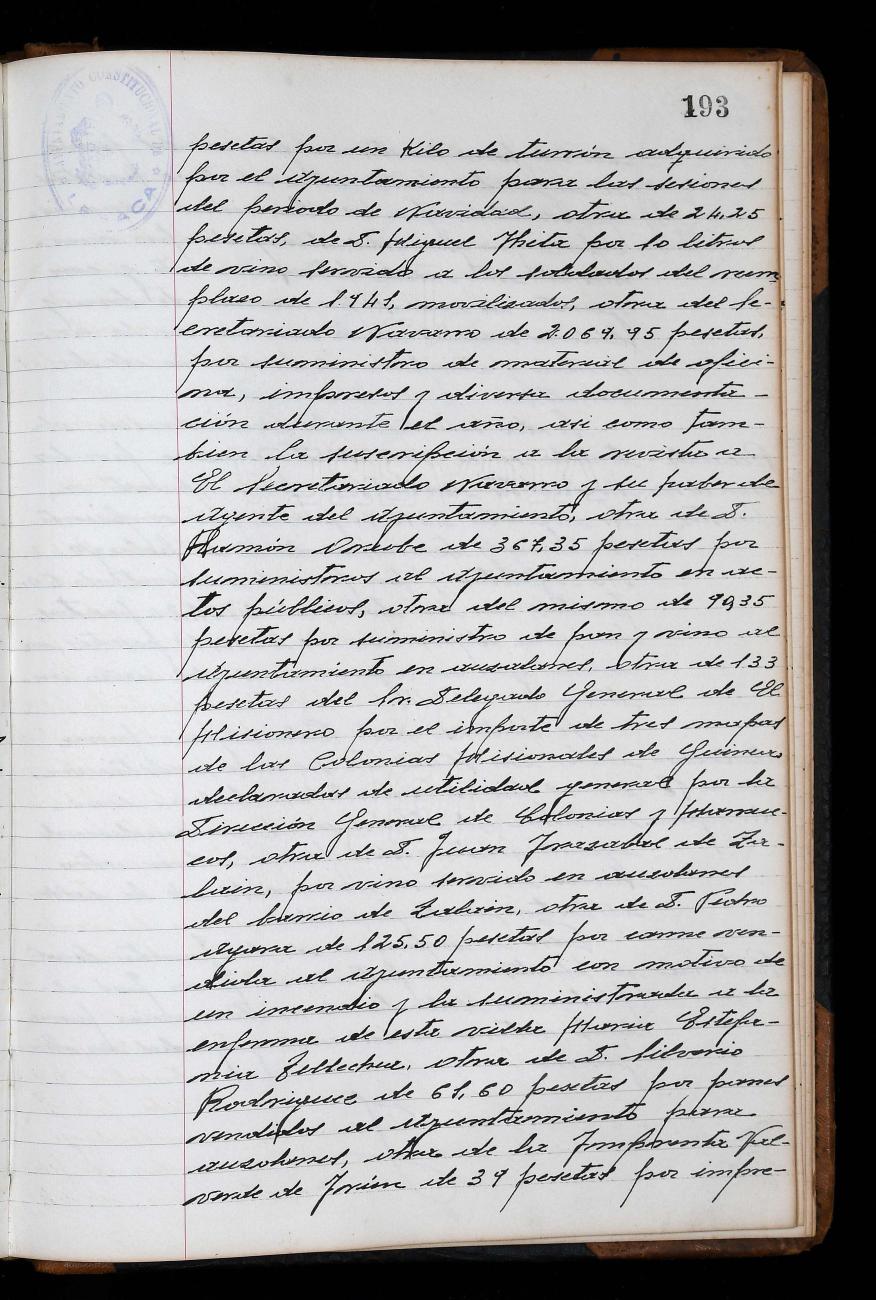 193
AYUNTAMIENTO CONSTITUCIONAL DE
pesetas por un Kilo de turrón adquirido
por el Ayuntamiento para las sesiones
del periodo de Navidad, otra de 24,25
pesetas, de D. Miguel Iheta por 10 litros
de vino servido a los soldados del reem
plazo de 1.941, movilizados, otra del Se-
cretariado Navarro de 2.069,95 pesetas,
por suministro de material de ofici-
na, impresos y diversa documenta-
ción durante el año, asi como tam-
bien la suscripción a la revista a
El Secretariado Navarro y su haber de
Agente del Ayuntamiento, otra de D.
Ramón de 367,35 pesetas por
suministros al Ayuntamiento en ac-
tos públicos, otra del mismo de 90,35
pesetas por suministro de pan y vino al
Ayuntamiento en auzolanes, otra de 133
pesetas del Sr. Delegado General de El
Misionero por el importe de tres mapas
de las Colonias Misionales de Guinea
declarados de utilidad general por la
Dirección General de Colonias y Marrue-
cos, otra de D. Juan Irazabal de Za-
lain, por vino servido en auzolanes
del barrio de Zalain, otra de D. Pedro
Ayara de 125,50 pesetas por carne ven-
dida al Ayuntamiento con motivo de
un incendio y la suministrada a la
enferma de esta villa Maria Estefa-
nia Tellechea, otra de D. Silverio
Rodriguez de 61,60 pesetas por panes
vendidos al Ayuntamiento para
auzolanes, otra de la Imprenta Val-
verde de Irún de 39 pesetas por impre-